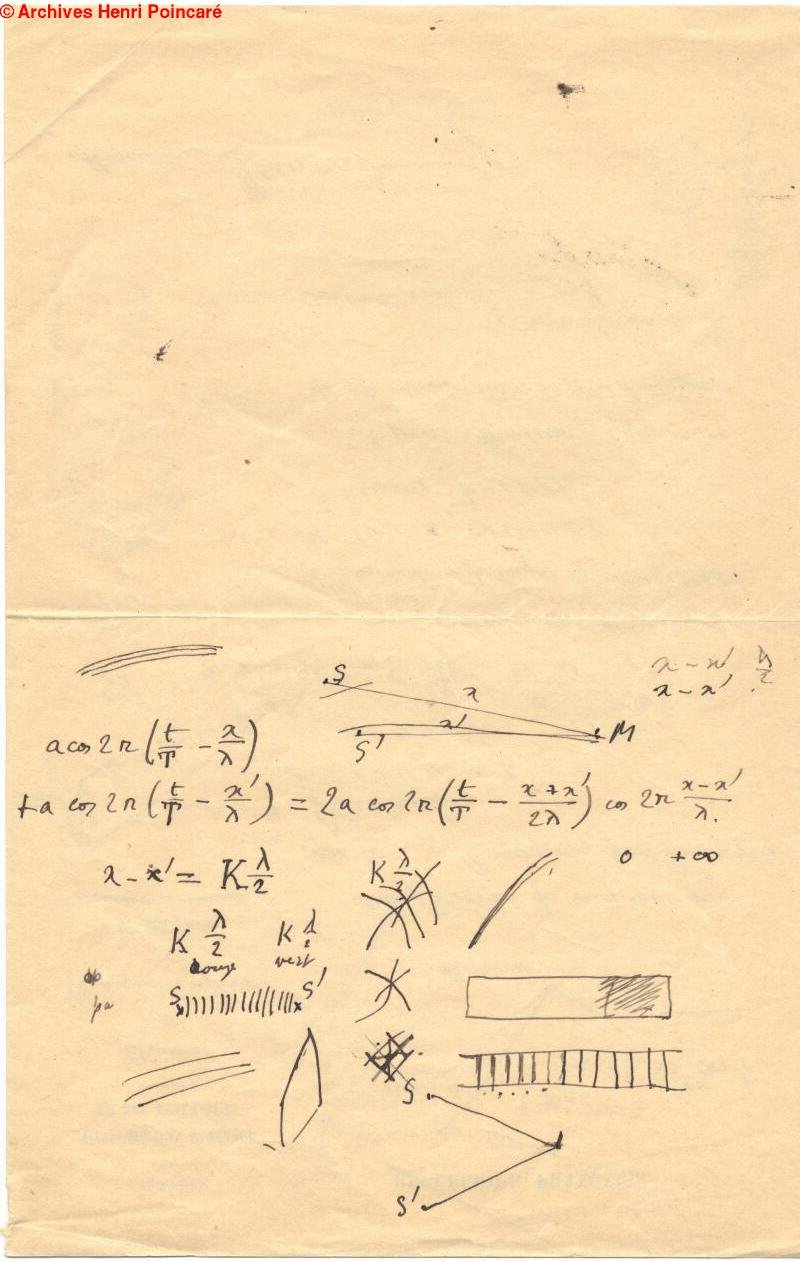 © Archives Henri Poincaré
S x x - x' λ/2
x - x'
S' x' M
a cos 2π (t/T - x/λ)
+ a cos 2π (t/T - x'/λ) = 2a cos 2π (t/T - x + x'/2λ) cos 2π x - x'/λ.
0 +∞
x - x' = K λ/2 K λ/2
K λ/2 K λ/2
rouge vert
S S'
S
S'